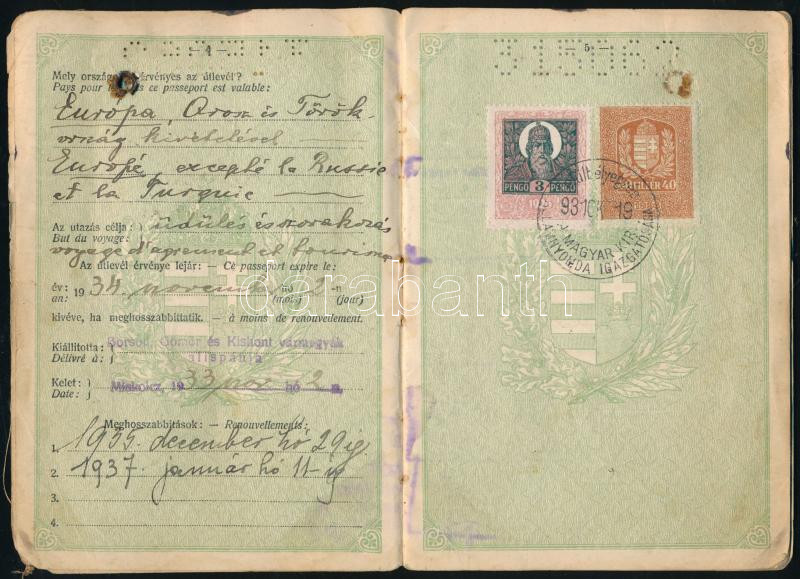 — 4 —
Mely országok érvényes az útlevél?
Pays pour ce passeport est valable:
Europa, Orosz és Török-
ország kivételével
Europe, excepté la Russie
et la Turquie
Az utazás célja: üdülés és szórakozás
But du voyage: voyage d'agrément et tourisme
Az útlevél érvénye lejár: — Ce passeport expire le:
év: 1934. november hó 2-n
an: (mois) (jour)
kivéve, ha meghosszabbíttatik. — à moins de renouvellement.
Kiállította: Borsod, Gömör és Kishont vármegyék
Délivré à: alispánja
Kelet: Miskolc, 1933 nov. hó 2 n.
Date:
Meghosszabbítások: — Renouvellements:
1. 1935. december hó 29 ig
2. 1937. január hó 11-ig
3.
4.
— 5 —
PENGŐ 3 PENGŐ
FILLÉR 40
931 19
MAGYAR KIR.
ÁLLAMNYOMDA IGAZGATÓSÁGA
darabanth